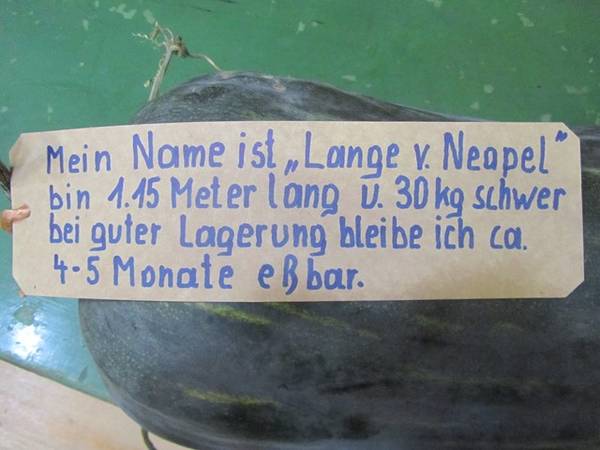 Mein Name ist „Lange v. Neapel"
bin 1.15 Meter lang u. 30 kg schwer
bei guter Lagerung bleibe ich ca.
4-5 Monate eßbar.